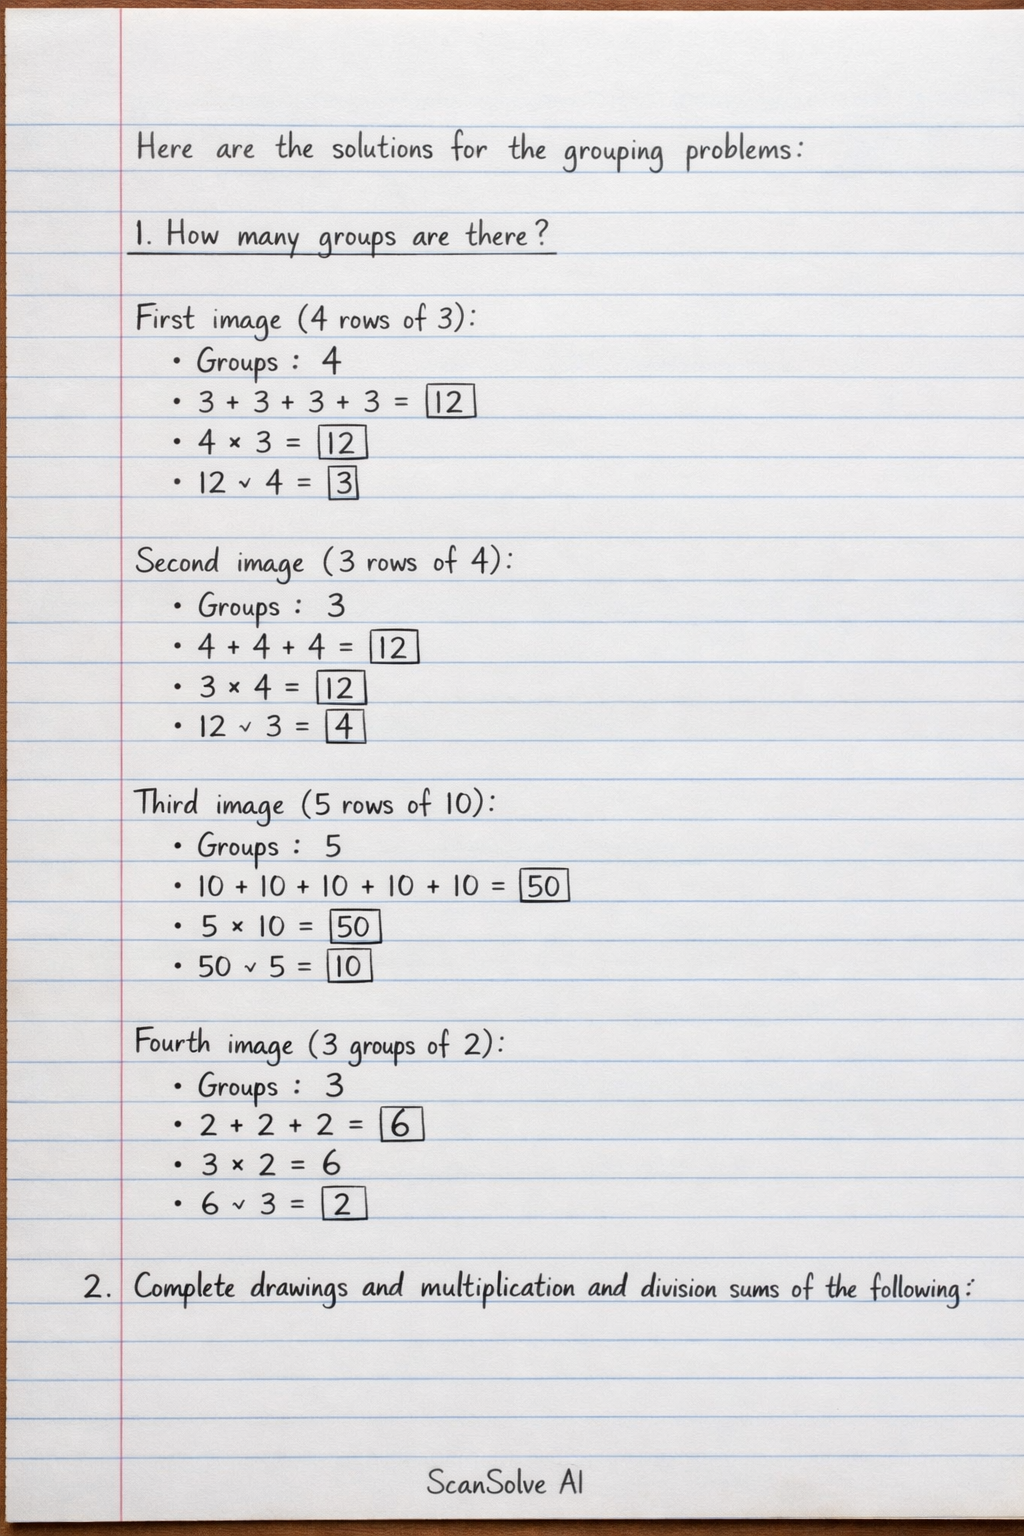 Here are the solutions for the grouping problems:
1. How many groups are there?
First image (4 rows of 3):
• Groups : 4
• 3 + 3 + 3 + 3 = 12
• 4 × 3 = 12
• 12 ✓ 4 = 3
Second image (3 rows of 4):
• Groups : 3
• 4 + 4 + 4 = 12
• 3 × 4 = 12
• 12 ✓ 3 = 4
Third image (5 rows of 10):
• Groups : 5
• 10 + 10 + 10 + 10 + 10 = 50
• 5 × 10 = 50
• 50 ✓ 5 = 10
Fourth image (3 groups of 2):
• Groups : 3
• 2 + 2 + 2 = 6
• 3 × 2 = 6
• 6 ✓ 3 = 2
2. Complete drawings and multiplication and division sums of the following:
ScanSolve AI